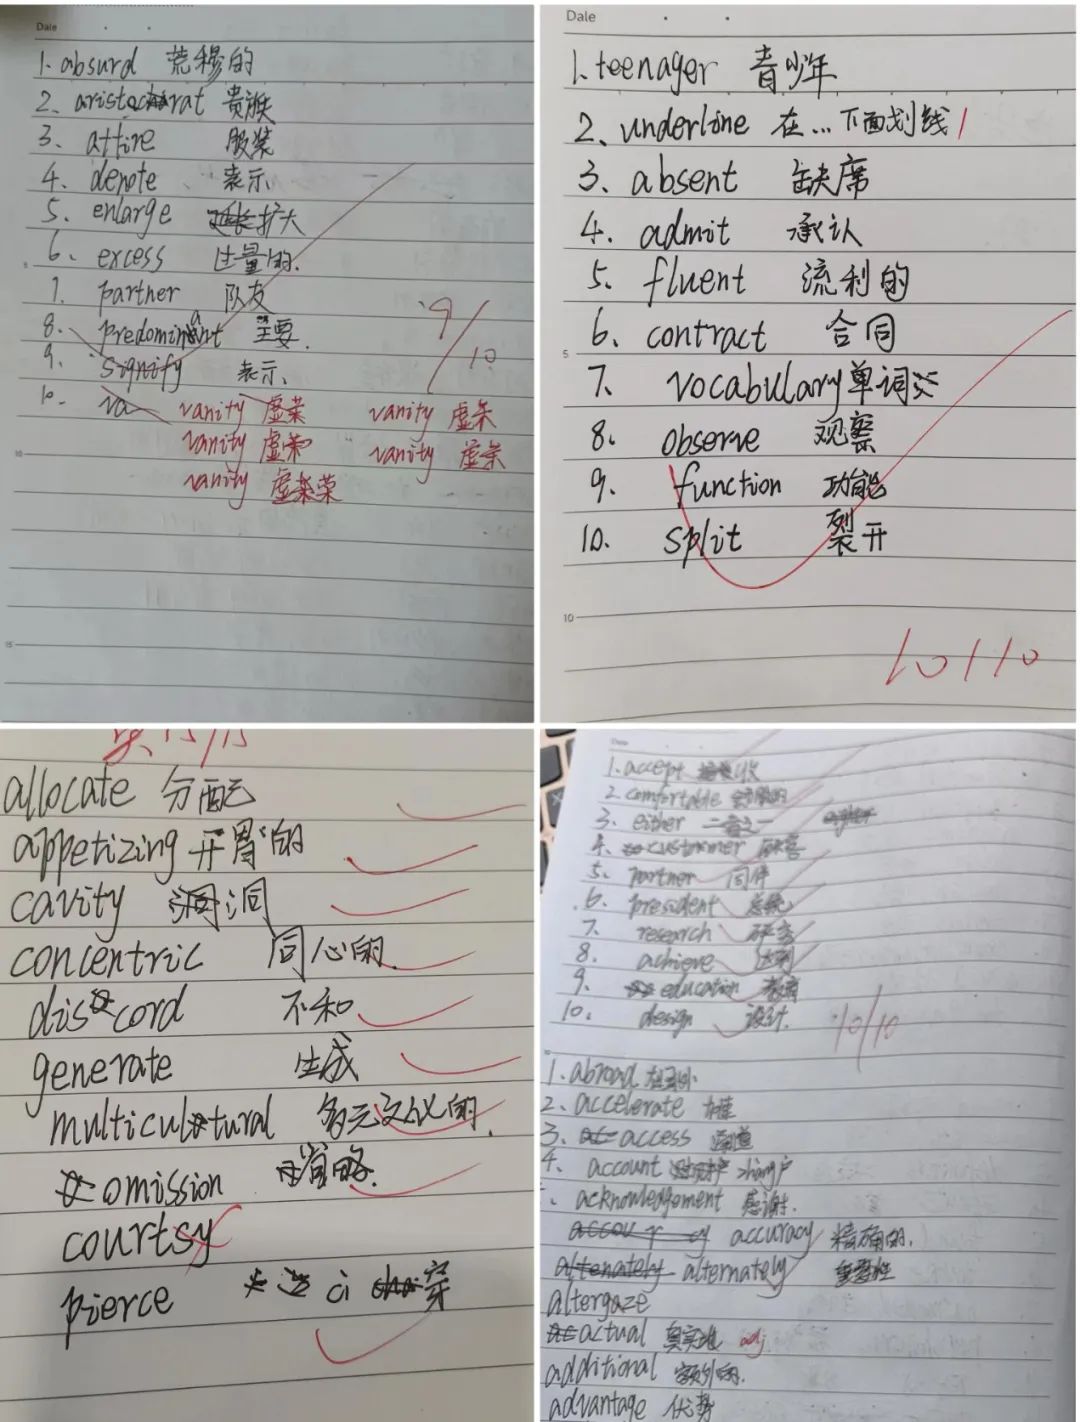 Dale
1. absurd 荒穆的
2. aristocrat 贵族
3. attire 服装
4. denote 表示
5. enlarge 扩大
6. excess 过量的.
7. partner 队友
8. predominant 主要.
9. signify 表示.
10. va vanity 虚荣 vanity 虚荣
vanity 虚荣 vanity 虚荣
vanity 虚荣
9/10
10
15
Dale
1. teenager 青少年
2. underline 在...下面划线
3. absent 缺席
4. admit 承认
5. fluent 流利的
6. contract 合同
5
7. vocabulary 单词
8. observe 观察
9. function 功能
10. split 裂开
10
10/10
15/15
allocate 分配
appetizing 开胃的
cavity 洞
concentric 同心的.
discord 不和
generate 生成
multicultural 多元文化的.
omission 省略.
courtsy
pierce ci 穿
1. accept 收
2. comfortable
3. either 二者之一
4. customer 顾客
5. partner 同伴
6. president 总统
7. research 研究
8. achieve 达到
9. education 教育
10. design 设计.
10/10
1. abroad
2. accelerate
3. access 通道
4. account zhang户
acknowledgement 感谢.
accuracy 精确的.
alternately 重要性
altergaze
actual 真实地 adj.
additional 额外的.
advantage 优势